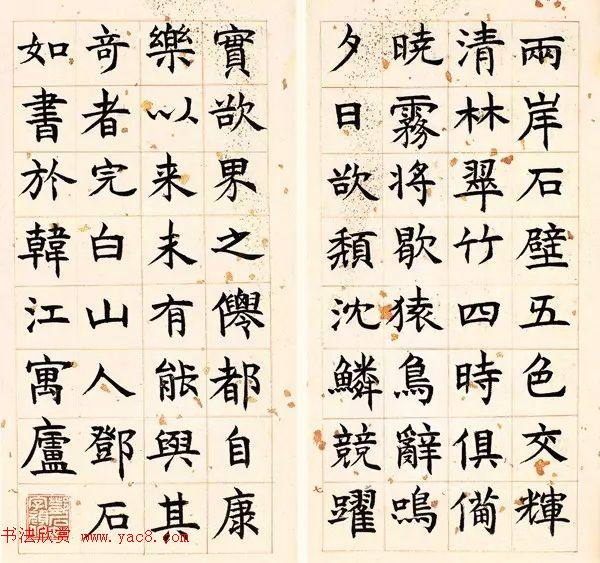 兩岸石壁五色交輝
清林翠竹四時俱備
曉霧将歇猿鳥辭鳴
夕日欲頹沈鱗競躍
實欲界之僊都自康
樂以来未有能與其
奇者完白山人鄧石
如書於韓江寓廬
书法欣赏 www.yac8.com